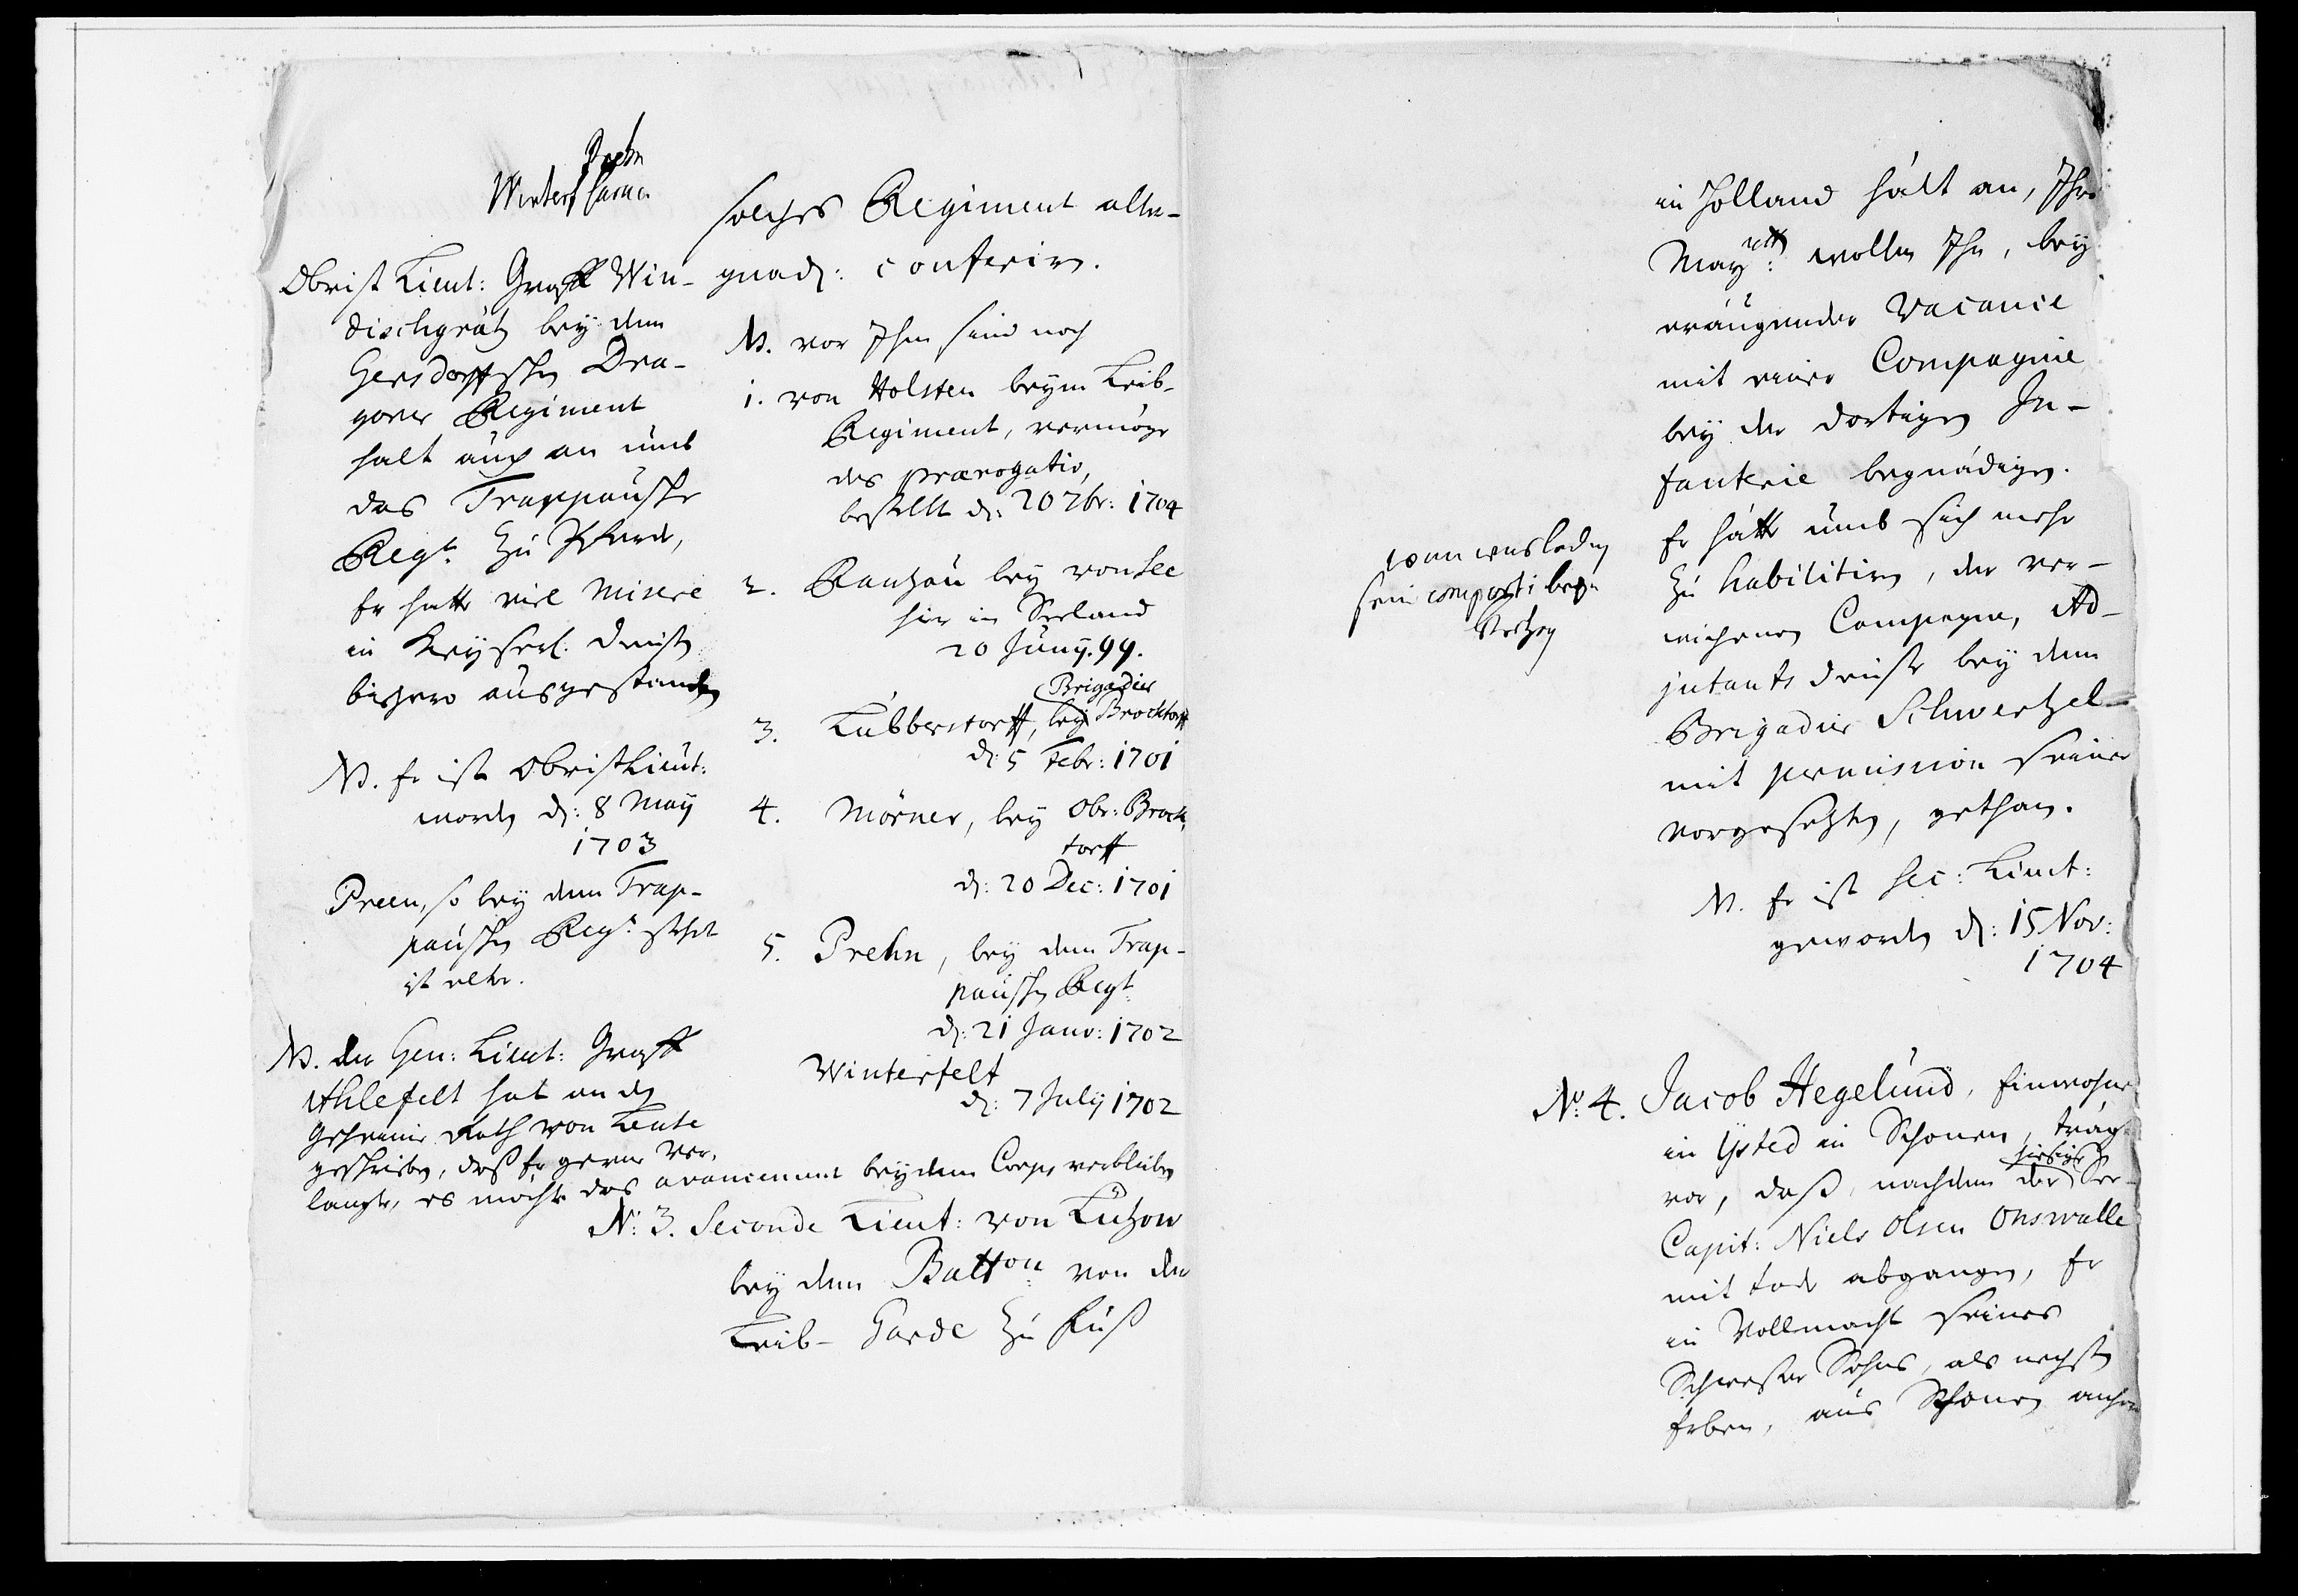 Obrist Lieut: Graff Win-
dischgrätz bey dem
Gersdorffschen Dra-
goner Regiment
halt auch an umb
das Trappausche
Regt. zu Pferde,
Er hatte viel Misere
in Keyserl. Dienst
bishero ausgestanden
NB. Er ist Obrist Lieut:
worden d: 8 May
1703
Preen, so bey dem Trap-
pauschen Regt. stehet
ist elter.
NB. der Gen: Lieut: Graff
Ahlefelt hat an den
Geheimen Rath von Lente
geschrieben, daß Er gerne ver-
langte, es mochte das avancement bey dem Corps verbleiben
solches Regiment aller-
gnäd: conferiren.
NB. vor Ihm sind noch
1. von Holsten beym Leib-
Regiment, vermöge
des prærogativ,
bestellt d: 20 7br: 1704
2. Rantzau bey von See
hir in Seeland
20 Juny. 99.
3. Lübberstorff, bey Brigadier Brocktorff
d: 5 Febr: 1701
4. Mörner, bey Obr: Brock-
torff
d: 20 Dec: 1701
5. Prehn, bey dem Trap-
pauschen Regt.
d: 21 Janv: 1702
Winterfelt
d: 7 July 1702
No: 3. Seconde Lieut: von Lützow
bey dem Batton von der
Leib-Garde zu Fuß
in Holland hält an, Ihro
Maytt: wollen Ihn, bey
eräugender Vacance
mit einer Compagnie
bey der dortigen In-
fanterie begnädigen.
Er hätte umb sich mehr
zu habilitiren, der ver-
wichenen Campagne, Ad-
jutants dienste bey dem
Brigadier Schwertzel
mit permission seiner
vorgesetzten, gethan.
NB. Er ist Sec: Lieut:
geworden d: 15 Nov:
1704
No: 4. Jacob Hegelund, Einwohner
in Ysted in Schonen, träg
vor, daß, nachdem der hiesige See-
Capit: Niels Olsen Onswalle
mit tode abgangen, Er
in Vollmacht seines
Schwester Sohns, als nechsten
Erben, aus Schonen anhero